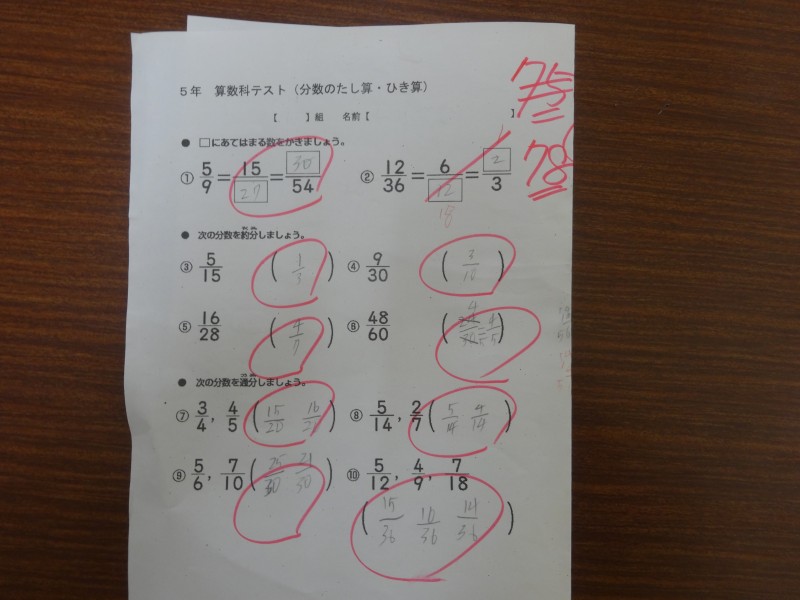 5年 算数科テスト（分数のたし算・ひき算）
75
【 】組 名前【 】
78
● □にあてはまる数をかきましょう。
① 5/9=15/27=30/54 ② 12/36=6/12=2/3
18
● 次の分数を約分しましょう。
③ 5/15 ( 1/3 ) ④ 9/30 ( 3/10 )
⑤ 16/28 ( 4/7 ) ⑥ 48/60 ( 4/5 )
● 次の分数を通分しましょう。
⑦ 3/4, 4/5 ( 15/20 16/20 ) ⑧ 5/14, 2/7 ( 5/14 4/14 )
⑨ 5/6, 7/10 ( 25/30 21/30 ) ⑩ 5/12, 4/9, 7/18
( 15/36 16/36 14/36 )